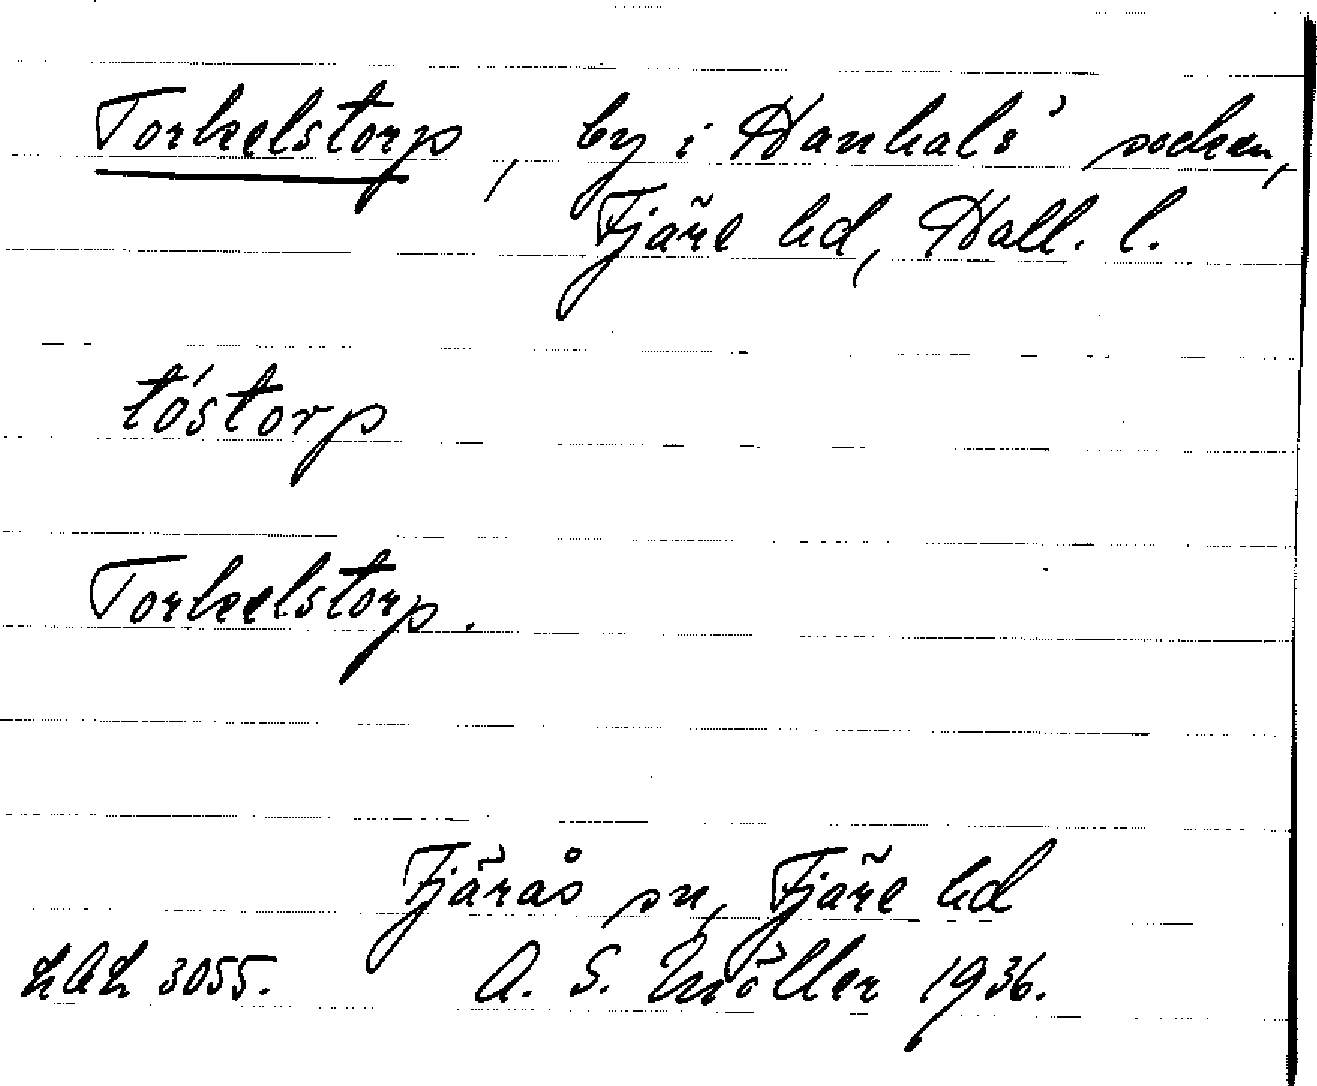 Torkelstorp, by i Hanhals' socken,
Fjäre hd, Hall. l.
tóstorp
Torkelstorp.
Fjärås sn, Fjäre hd
LAL 3055. A. S. Möller 1936.